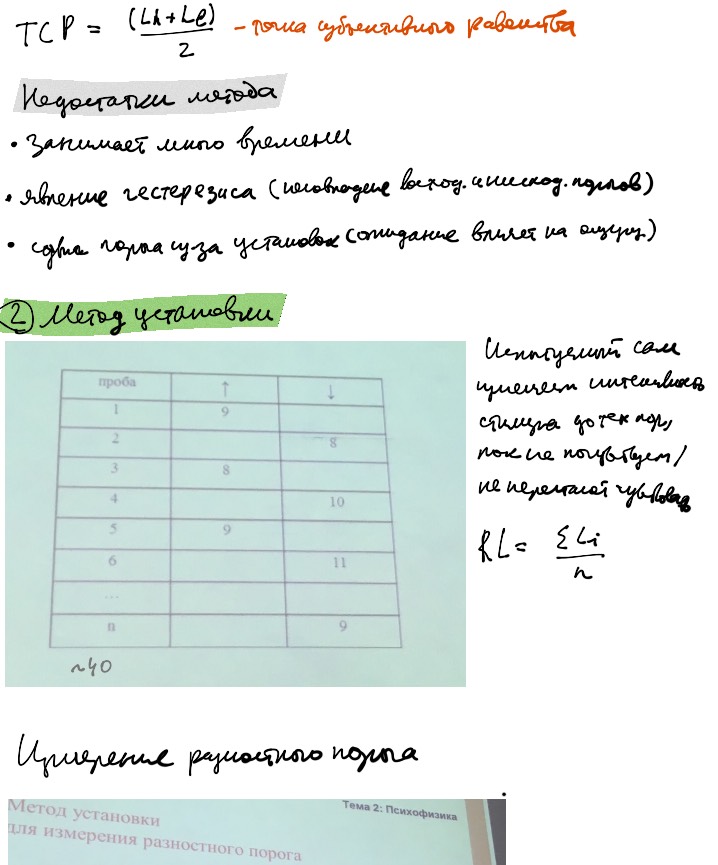 ТСР = (Lh + Le) / 2 – точка субъективного равенства
Недостатки метода
• занимает много времени
• явление гестерезиса (несовпадение восход. и нисход. порогов)
• сдвиг порога из-за установок (ожидание влияет на ощущ.)
② Метод установки
Испытуемый сам
изменяет интенсивность
стимула до тех пор,
пока не почувствует /
не перестанет чувствовать
RL = ΣLi / n
проба ↑ ↓
1 9
2 8
3 8
4 10
5 9
6 11
...
n 9
~40
Измерение разностного порога
Метод установки
для измерения разностного порога
Тема 2: Психофизика